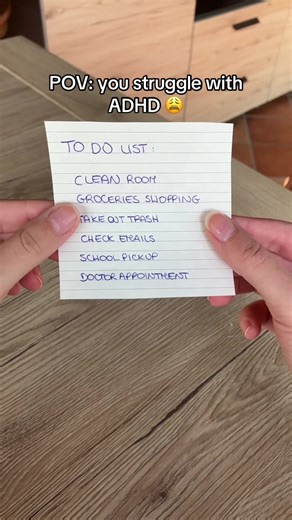 POV: you struggle with
ADHD 😩
TO DO LIST:
CLEAN ROOM
GROCERIES SHOPPING
TAKE OUT TRASH
CHECK EMAILS
SCHOOL PICKUP
DOCTOR APPOINTMENT